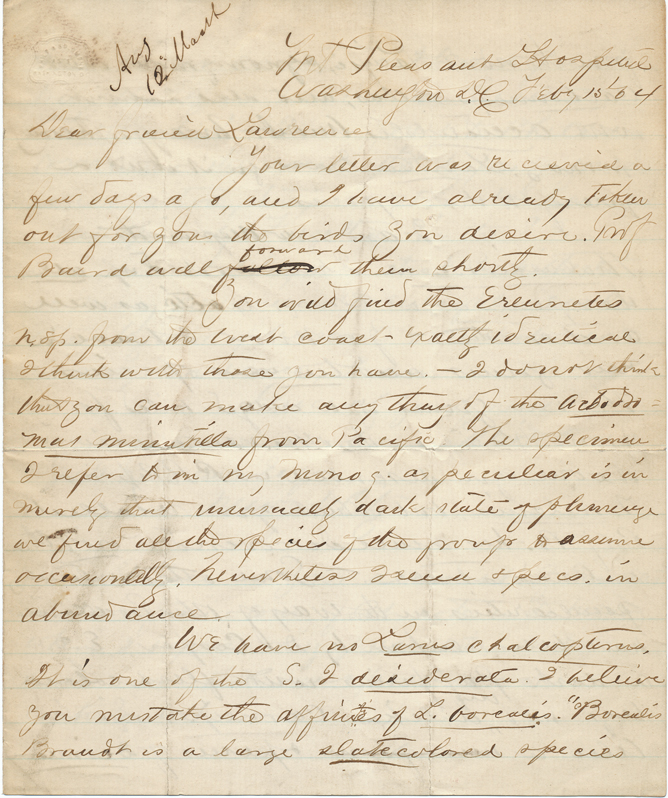 Ans
12 March
Mt Pleasant Hospital
Washington D.C. Feby 15 '64
Dear friend Lawrence,
Your letter was recieved a
few days ago, and I have already taken
out for you the birds you desire. Prof
Baird will forward them shortly.
You will find the Ereunetes
n.sp. from the west coast - exactly identical
I think with those you have. — I do not think
that you can make anything of the Actodro=
mas minutilla from Pacific. The specimen
I refer to in my Monog. as peculiar is in
merely that unusually dark state of plumage
we find all the species of the group to assume
occasionally. Nevertheless I send specs. in
abundance.
We have no Larus chalcopterus.
It is one of the S. I desiderata. I believe
you mistake the affinities of L. borealis. "Borealis
Brandt is a large slate colored species